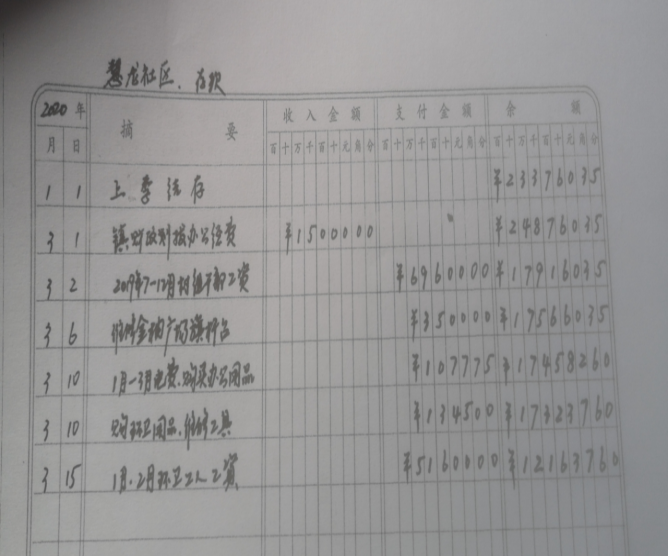 慧龙社区、存款
2020年 摘要 收入金额 支付金额 余额
月 日 百十万千百十元角分 百十万千百十元角分 百十万千百十元角分
1 1 上季结存 ¥23376035
3 1 镇财政划拨办公经费 ¥1500000 ¥24876035
3 2 2019年7-12月村组干部工资 ¥6960000 ¥17916035
3 6 维修金柚广场旗杆台 ¥350000 ¥17566035
3 10 1月-3月电费、购买办公用品 ¥107775 ¥17458260
3 10 购环卫用品、维修工具 ¥134500 ¥17323760
3 15 1月、2月环卫工人工资 ¥5160000 ¥12163760